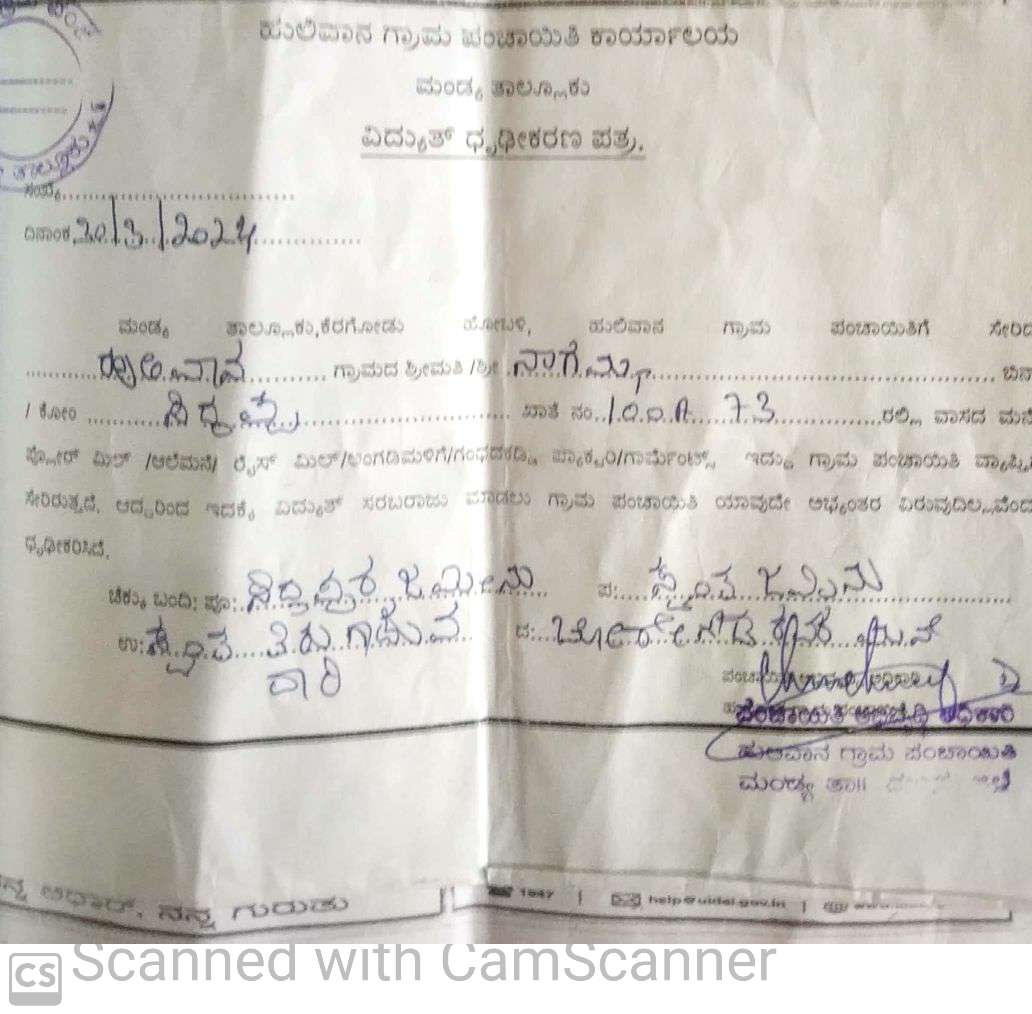 ಹುಲಿವಾನ ಗ್ರಾಮ ಪಂಚಾಯಿತಿ ಕಾರ್ಯಾಲಯ
ಮಂಡ್ಯ ತಾಲ್ಲೂಕು
ವಿದ್ಯುತ್ ಧೃಢೀಕರಣ ಪತ್ರ.
ತಾಲ್ಲೂಕು
ಸಂಖ್ಯೆ
ದಿನಾಂಕ 20/3/2024
ಮಂಡ್ಯ ತಾಲ್ಲೂಕು,ಕೆರಗೋಡು ಹೋಬಳಿ, ಹುಲಿವಾನ ಗ್ರಾಮ ಪಂಚಾಯಿತಿಗೆ ಸೇರಿದ
ಹುಲಿವಾನ ಗ್ರಾಮದ ಶ್ರೀಮತಿ /ಶ್ರೀ ನಾಗಮ್ಮ ಬಿನ್
/ ಕೋಂ ಸಿದ್ದಪ್ಪ ಖಾತೆ ನಂ. 100A 73 ರಲ್ಲಿ ವಾಸದ ಮನೆ
ಪ್ಲೋರ್ ಮಿಲ್ /ಆಲೆಮನೆ/ ರೈಸ್ ಮಿಲ್/ಅಂಗಡಿಮಳಿಗೆ/ಗಂಧದಕಡ್ಡಿ ಪ್ಯಾಕ್ಟರಿ/ಗಾರ್ಮೆಂಟ್ಸ್ ಇದ್ದು ಗ್ರಾಮ ಪಂಚಾಯಿತಿ ವ್ಯಾಪ್ತಿಗೆ
ಸೇರಿರುತ್ತದೆ, ಆದ್ದರಿಂದ ಇದಕ್ಕೆ ವಿದ್ಯುತ್ ಸರಬರಾಜು ಮಾಡಲು ಗ್ರಾಮ ಪಂಚಾಯಿತಿ ಯಾವುದೇ ಅಭ್ಯಂತರ ವಿರುವುದಿಲ್ಲವೆಂದ
ಧೃಢೀಕರಿಸಿದೆ.
ಚೆಕ್ಕು ಬಂದಿ: ಪೂ: ಸಿದ್ದಪ್ಪರ ಜಮೀನು ಪ: ಸ್ವಂತ ಜಮೀನು
ಉ: ಸ್ವಂತ ತಿರುಗಾಡುವ ದ: ಬೋರೇಗೌಡ ಮನೆ
ದಾರಿ
ಪಂಚಾಯಿತಿ ಅಭಿವೃದ್ಧಿ ಅಧಿಕಾರಿ
ಹುಲಿವಾನ ಗ್ರಾಮ ಪಂಚಾಯಿತಿ
ಮಂಡ್ಯ ತಾ||
ನನ್ನ ಆಧಾರ್, ನನ್ನ ಗುರುತು
1947 | help@uidai.gov.in | www.
CS Scanned with CamScanner